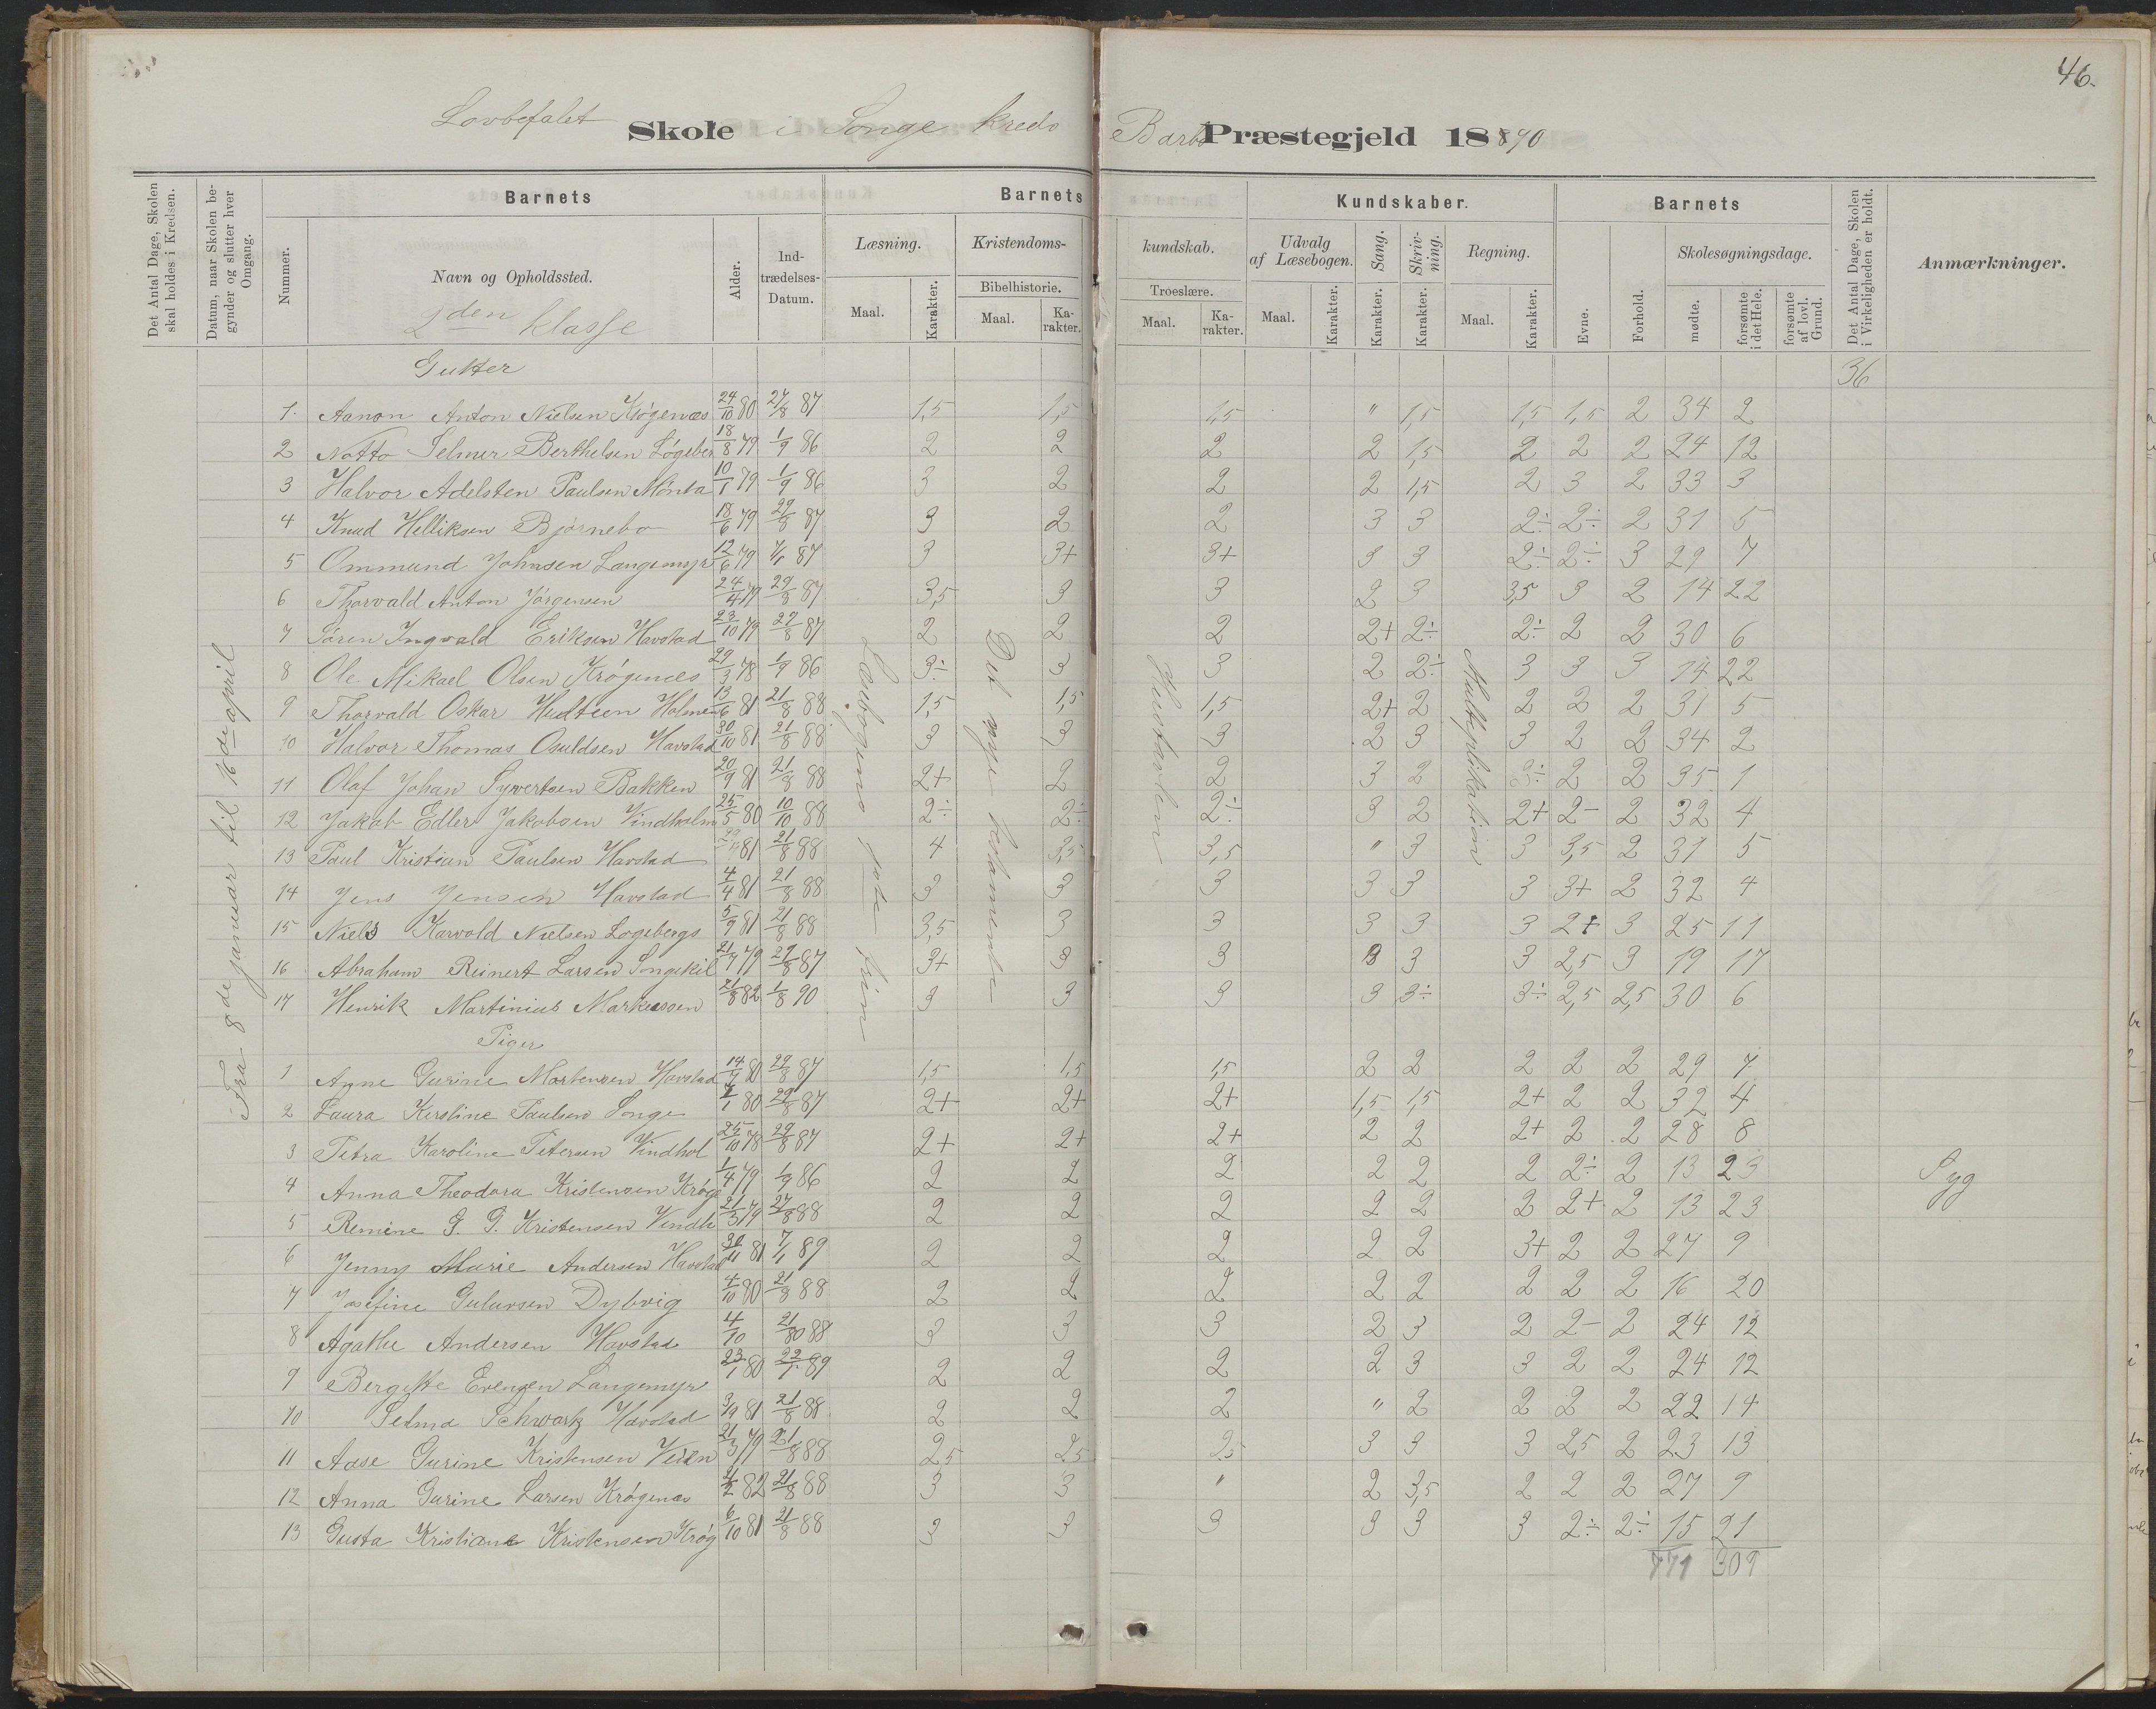 46.
Lovbefalet Skole i Songe kreds Barbo Præstegjeld 1890
Det Antal Dage, Skolen skal holdes i Kredsen.
Datum, naar Skolen begynder og slutter hver Omgang.
Nummer.
Barnets
Navn og Opholdssted.
Alder.
Indtrædelses-Datum.
Barnets Kundskaber.
Læsning. Maal. Karakter.
Kristendomskundskab.
Bibelhistorie. Maal. Karakter.
Troeslære. Maal. Karakter.
Udvalg af Læsebogen. Maal. Karakter.
Sang. Karakter.
Skrivning. Karakter.
Regning. Maal. Karakter.
Barnets
Evne. Forhold.
Skolesøgningsdage.
mødte. forsømte i det Hele. forsømte af lovl. Grund.
Det Antal Dage, Skolen i Virkeligheden er holdt.
Anmærkninger.
2den klasse
Gutter 36
Fra 8de januar til 16de april
Multiplikation
1. Aanon Anton Nielsen Krøgenæs 24/10 80 27/8 87 1,5 1,5 1,5 " 1,5 1,5 1,5 2 34 2
2 Notto Selmer Berthelsen Løgeber 18/8 79 1/9 86 2 2 2 2 1,5 2 2 2 24 12
3 Halvor Adelsten Paulsen 10/1 79 1/9 86 3 2 2 2 1,5 2 3 2 33 3
4 Knud Helliksen Bjørnebo 18/6 79 29/8 87 3 2 2 3 3 2÷ 2÷ 2 31 5
5 Ommund Johnsen Langemyr 12/6 79 7/1 87 3 3+ 3+ 3 3 2÷ 2÷ 3 29 7
6 Thorvald Anton Jørgensen 24/4 79 29/8 87 3,5 3 3 2 3 3,5 3 2 14 22
7 Søren Ingvald Eriksen Havstad 23/10 79 29/8 87 2 2 2 2+ 2÷ 2÷ 2 2 30 6
8 Ole Mikael Olsen Krøgenæs 29/3 78 1/9 86 3÷ 3 3 2 2÷ 3 3 3 14 22
9 Thorvald Oskar Holmen 13/6 81 21/8 88 1,5 1,5 1,5 2+ 2 2 2 2 31 5
10 Halvor Thomas Osuldsen Havstad 30/10 81 21/8 88 3 3 3 2 3 3 2 2 34 2
11 Olaf Johan Syvertsen Bakken 20/9 81 21/8 88 2+ 2 2 3 2 3÷ 2 2 35 1
12 Jakob Edler Jakobsen Vindholm 25/5 80 10/10 88 2÷ 2÷ 2÷ 3 2 2+ 2- 2 32 4
13 Paul Kristian Paulsen Havstad 81 21/8 88 4 3,5 3,5 " 3 3 3,5 2 31 5
14 Jens Jensen Havstad 4/4 81 21/8 88 3 3 3 3 3 3 3+ 2 32 4
15 Niels Karvold Nielsen Logebergs 5/9 81 21/8 88 3,5 3 3 3 3 3 2+ 3 25 11
16 Abraham Reinert Larsen Songekil 21/7 79 29/8 87 3+ 3 3 3 3 3 2,5 3 19 17
17 Henrik Martinius Markussen 21/8 82 1/8 90 3 3 3 3 3÷ 3÷ 2,5 2,5 30 6
Piger
1 Anne Gurine Mortensen Havstad 14/7 80 29/8 87 1,5 1,5 1,5 2 2 2 2 2 29 7
2 Laura Kirstine Paulsen Songe 80 29/8 87 2+ 2+ 2+ 1,5 1,5 2+ 2 2 32 4
3 Petra Karoline Petersen Vindhol 25/10 78 29/8 87 2+ 2+ 2+ 2 2 2+ 2 2 28 8
4 Anna Theodora Kristensen Krøge 1/4 79 1/9 86 2 2 2 2 2 2 2÷ 2 13 23 Syg
5 Remine G. G. Kristensen Vindh 21/3 79 27/8 88 2 2 2 2 2 2 2+ 2 13 23
6 Jenny Marie Andersen Havstad 30/11 81 7/1 89 2 2 2 2 2 3+ 2 2 27 9
7 Josefine Gulursen Dybvig 4/10 80 21/8 88 2 2 2 2 2 2 2 2 16 20
8 Agathe Andersen Havstad 4/10 80 21/8 88 3 3 3 2 3 2 2- 2 24 12
9 Bergitte Evensen Langemyr 23/1 80 89 2 2 2 2 3 3 2 2 24 12
10 Selma Schwartz Havstad 81 21/8 88 2 2 2 " 2 2 2 2 22 14
11 Aase Gurine Kristensen 21/3 79 21/8 88 2,5 2,5 2,5 3 3 3 2,5 2 23 13
12 Anna Gurine Larsen Krøgenæs 82 21/8 88 3 3 " 2 3,5 2 2 2 27 9
13 Gusta Kristiane Kristensen Krøg 6/10 81 21/8 88 3 3 3 3 3 3 2÷ 2÷ 15 21
771 309